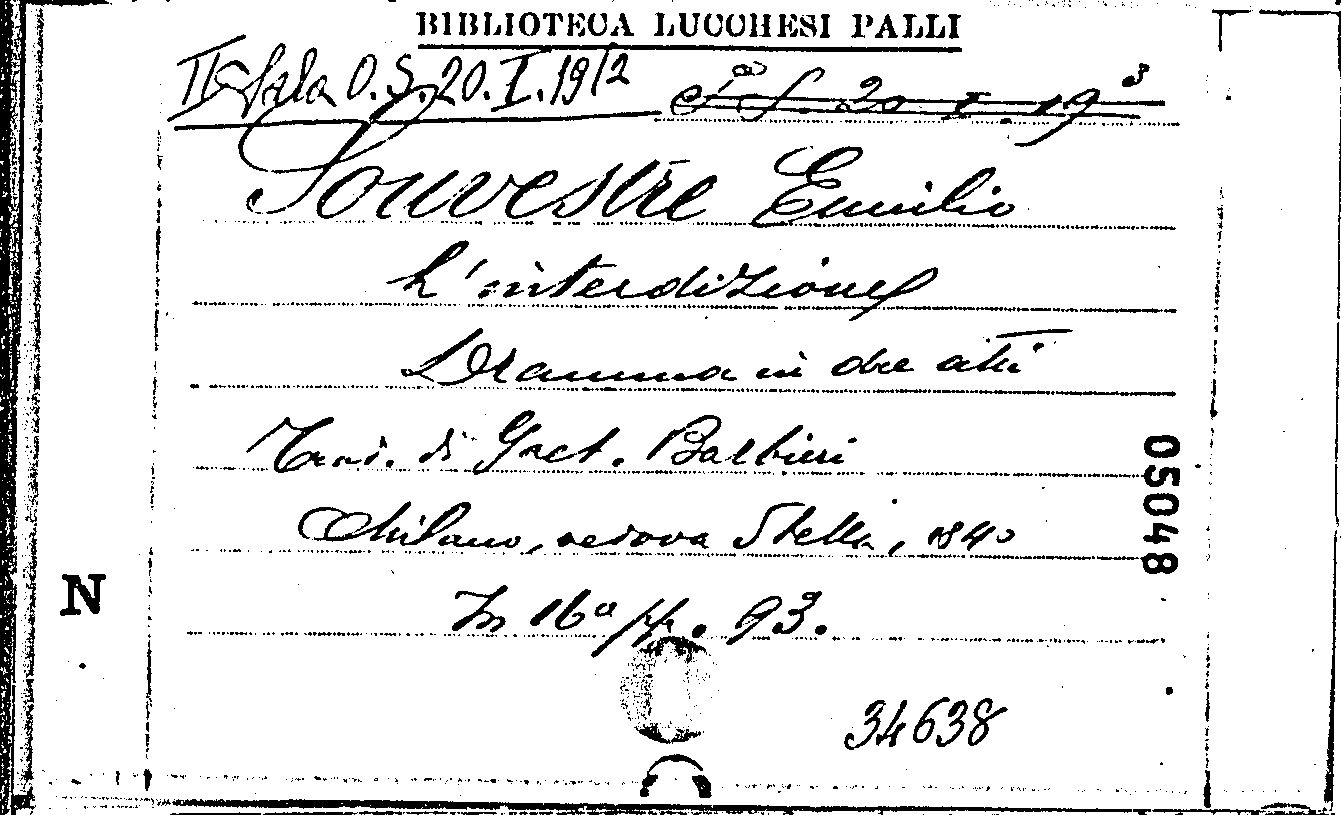 BIBLIOTECA LUCCHESI PALLI
II Sala O. S. 20. I. 19/2
S. 20 I. 19 3
Souvestre Emilio
L'interdizione
Dramma in due atti
Trad. di Gaet. Barbieri
Milano, vedova Stella, 1840
In 16º pp. 93.
34638
05048
N